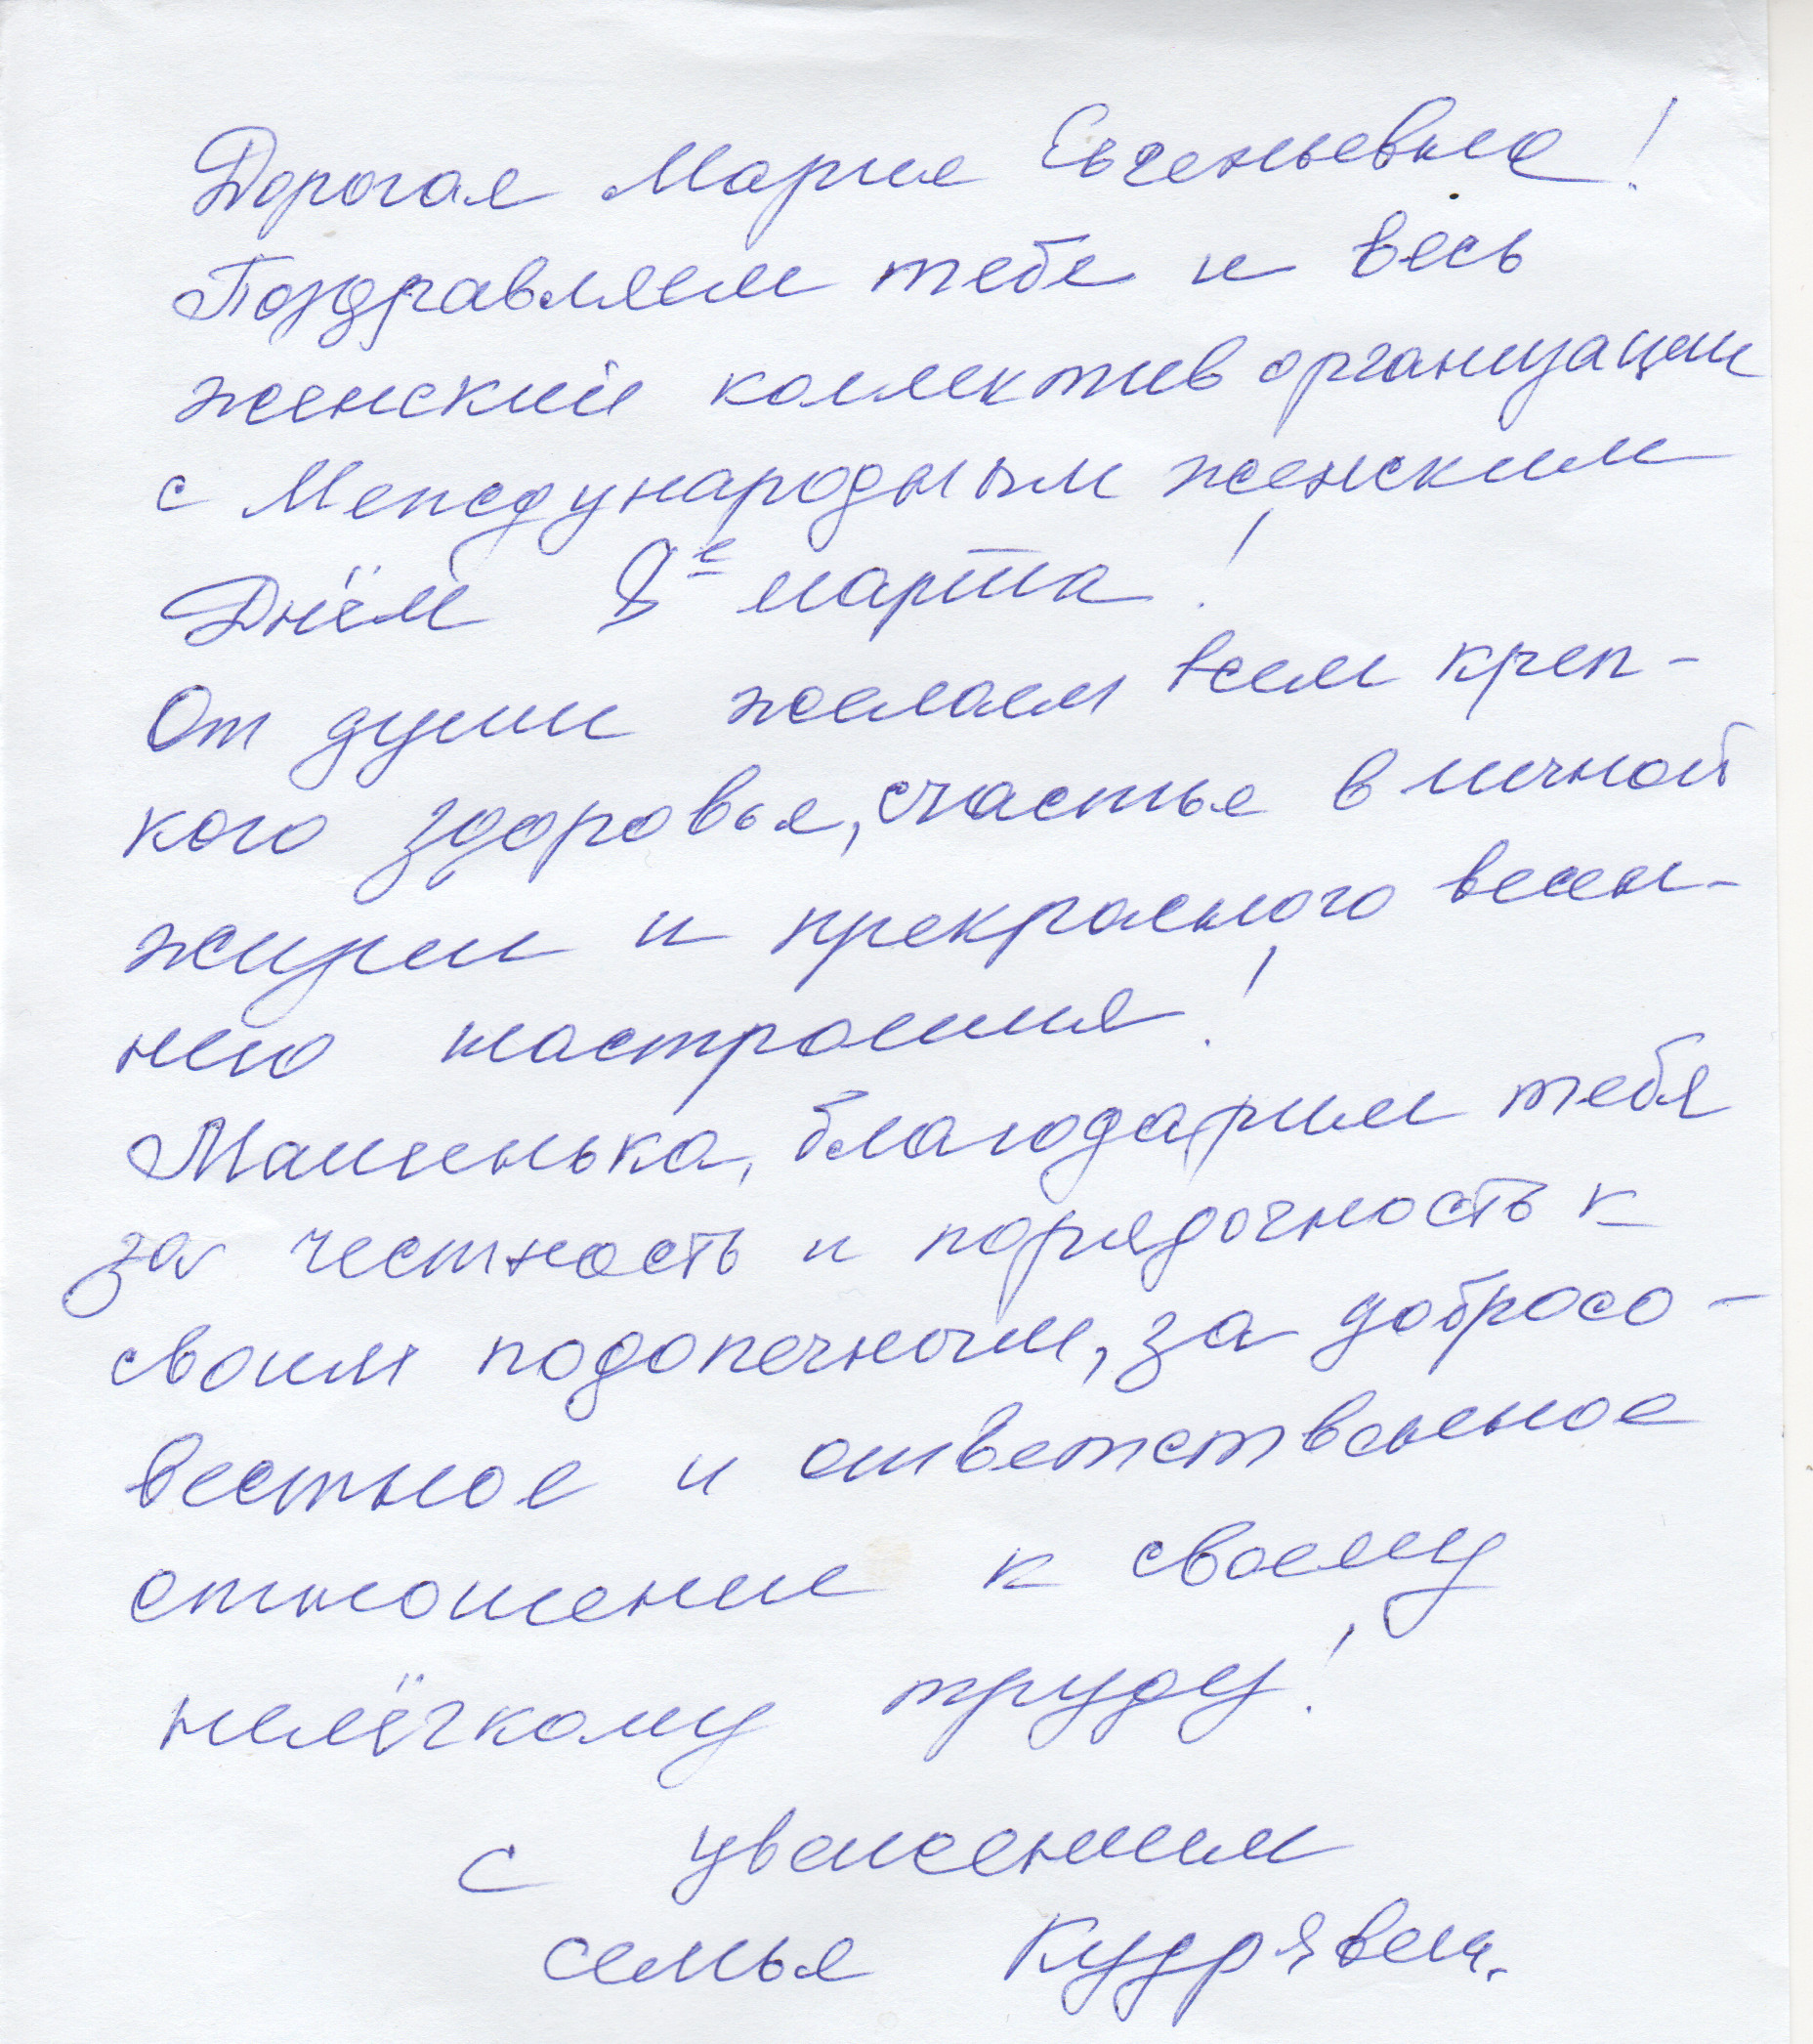 Дорогая Мария Евгеньевна!
Поздравляем тебя и весь
женский коллектив организации
с Международным женским
Днём 8е марта!
От души желаем всем креп-
кого здоровья, счастья в личной
жизни и прекрасного весен-
него настроения!
Машинька, благодарим тебя
за честность и порядочность к
своим подопечным, за добросо-
вестное и ответственное
отношение к своему
нелёгкому труду!
С уважением
семья Кудрявец.